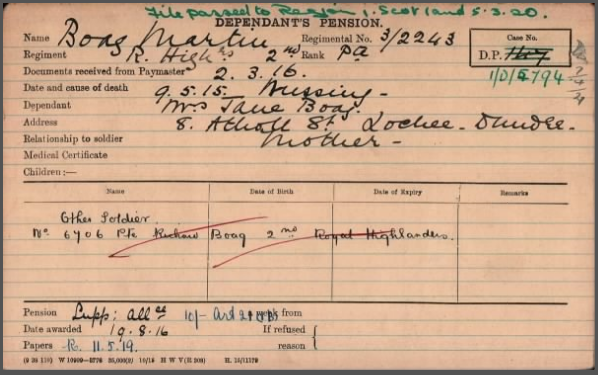 File passed to Region 1. Scotland 5.3.20.
DEPENDANT'S PENSION.
Name Boag Martin Regimental No. 3/2243
Regiment R. High'rs 2nd Rank Pte
Case No.
D.P.
1/D/5794
Documents received from Paymaster 2.3.16.
Date and cause of death 9.5.15. Missing -
Dependant Mrs Jane Boag.
Address 8. Atholl St. Lochee - Dundee -
Relationship to soldier Mother -
Medical Certificate
Children:—
Name Date of Birth Date of Expiry Remarks
Other Soldier.
No 6706 Pte Richard Boag 2nd Royal Highlanders.
Pension Supp: All ce 10/- Art 21 from
Date awarded 19.8.16 If refused
Papers R. 11.5.19. reason {
H W V